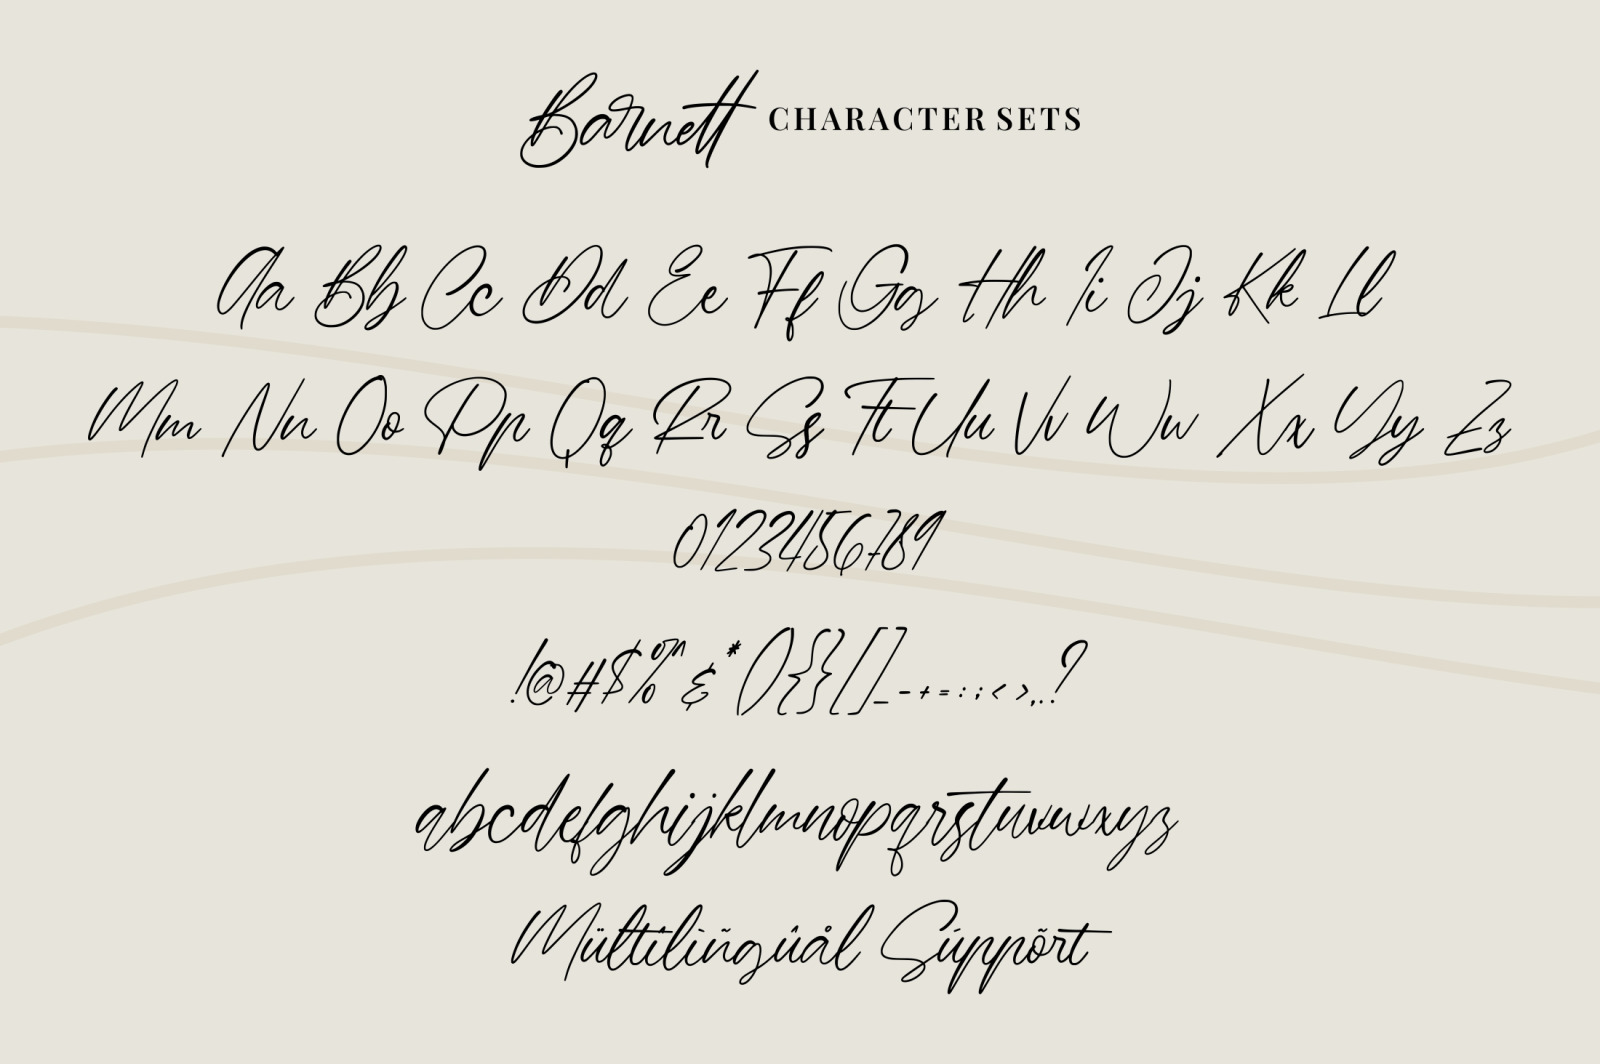 Barnett CHARACTER SETS
Aa Bb Cc Dd Ee Ff Gg Hh Ii Jj Kk Ll
Mm Nn Oo Pp Qq Rr Ss Tt Uu Vv Ww Xx Yy Zz
0123456789
!@#$%^&*(){}[]_-+=:;<>,.?
abcdefghijklmnopqrstuvwxyz
Mültîlìñgûål Súppõrt